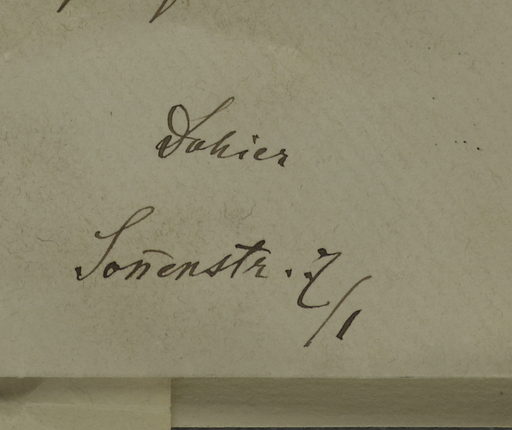 Dahier
Son̅enstr. 7/1